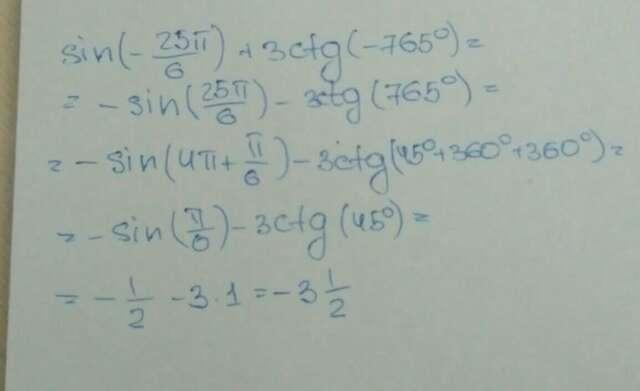 sin(-25π/6) + 3ctg(-765°) =
= -sin(25π/6) - 3ctg(765°) =
= -sin(4π + π/6) - 3ctg(45°+360°+360°) =
= -sin(π/6) - 3ctg(45°) =
= -1/2 - 3·1 = -3 1/2